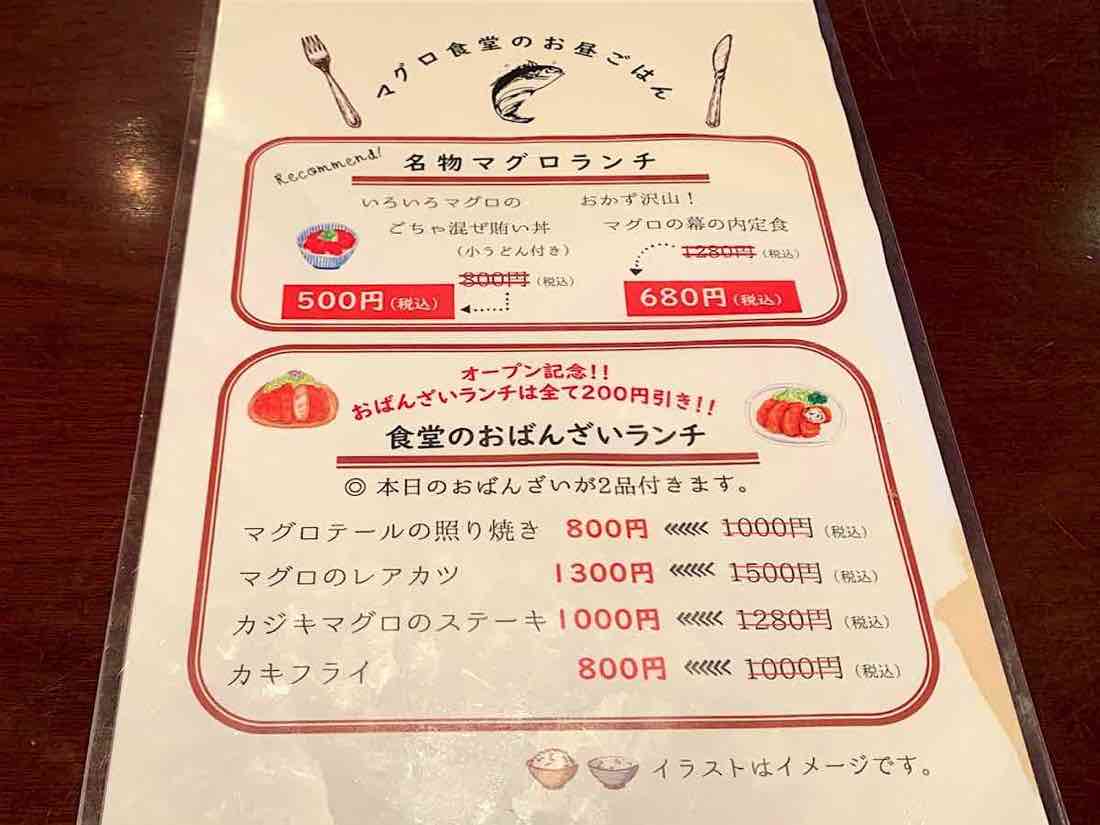 マグロ食堂のお昼ごはん
Recommend!
名物マグロランチ
いろいろマグロの
ごちゃ混ぜ賄い丼
(小うどん付き)
800円(税込)
500円(税込)
おかず沢山!
マグロの幕の内定食
1280円(税込)
680円(税込)
オープン記念!!
おばんざいランチは全て200円引き!!
食堂のおばんざいランチ
◎ 本日のおばんざいが2品付きます。
マグロテールの照り焼き 800円 <<<<< 1000円(税込)
マグロのレアカツ 1300円 <<<<< 1500円(税込)
カジキマグロのステーキ 1000円 <<<<< 1280円(税込)
カキフライ 800円 <<<<< 1000円(税込)
イラストはイメージです。